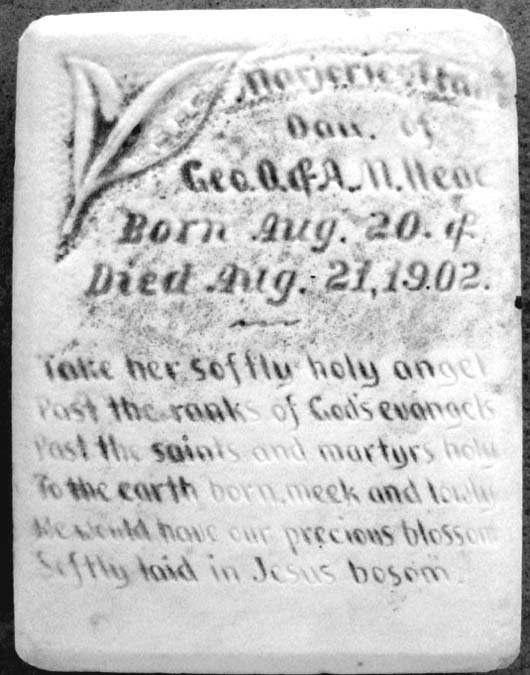 Marjerie
Dau. of
Geo. O. & A. M.
Born Aug. 20. &
Died Aug. 21, 1902.
Take her softly holy angel
Past the ranks of God's evangels
Past the saints and martyrs holy
To the earth born, meek and lowly
We would have our precious blossom
Softly laid in Jesus bosom.